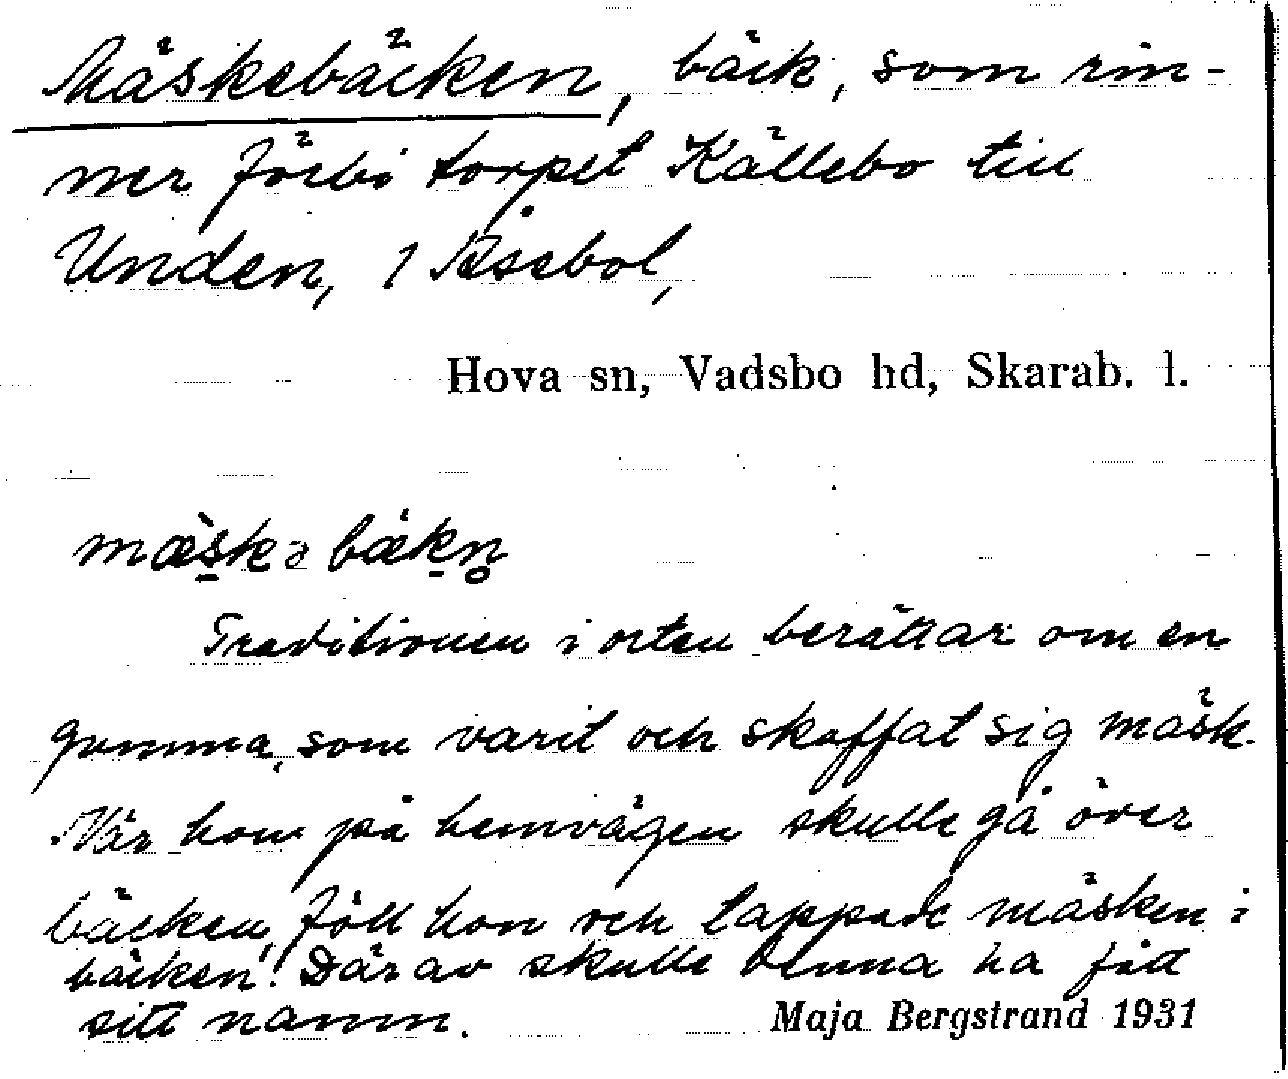 Mäskebäcken, bäck, som rin-
ner förbi torpet Källebo till
Unden, 1 Åsebol,
Hova sn, Vadsbo hd, Skarab. l.
mæ̀skə bækn̥
Traditionen i orten berättar om en
gumma, som varit och skaffat sig mäsk.
När hon på hemvägen skulle gå över
bäcken, föll hon och tappade mäsken i
bäcken! Därav skulle denna ha fått
sitt namn.
Maja Bergstrand 1931